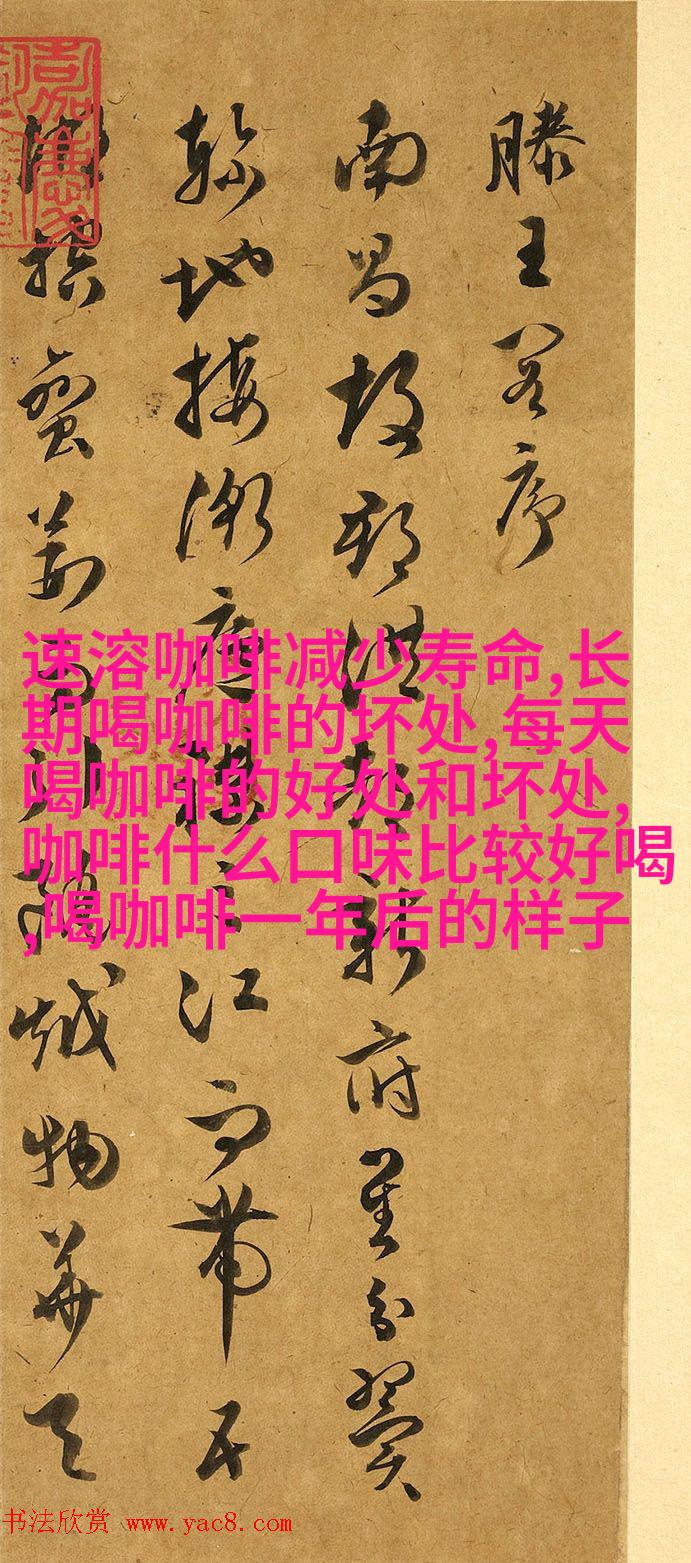 滕王閣序
南昌故郡洪都新府星分翼
軫地接衡廬襟三江而帶五
湖控蠻荊而引甌越物華天
速溶咖啡减少寿命,长
期喝咖啡的坏处,每天
喝咖啡的好处和坏处,
咖啡什么口味比较好喝
,喝咖啡一年后的样子
书法欣赏 www.yac8.com